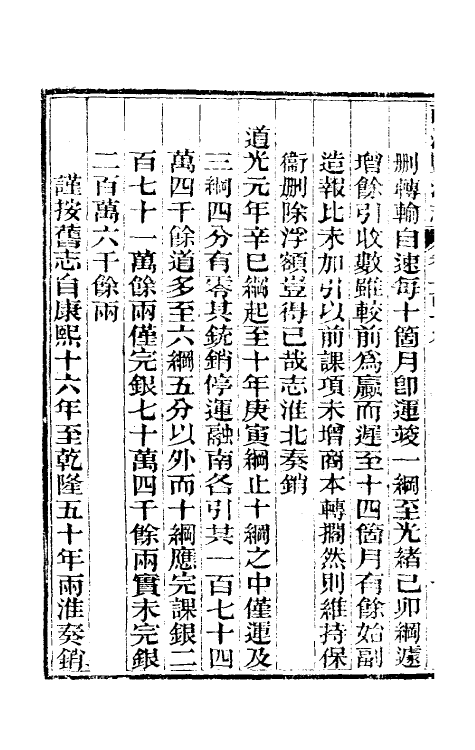 刪轉輸自速每十箇月卽運竣一綱至光緒己卯綱遞
增餘引收數雖較前爲贏而遲至十四箇月有餘始副
造報比未加引以前課項未增商本轉擱然則維持保
衞刪除浮額豈得已哉志淮北奏銷
道光元年辛巳綱起至十年庚寅綱止十綱之中僅運及
三綱四分有零其銃銷停運融南各引其一百七十四
萬四千餘道多至六綱五分以外而十綱應完課銀二
百七十一萬餘兩僅完銀七十萬四千餘兩實未完銀
二百萬六千餘兩
謹按舊志自康熙十六年至乾隆五十年兩淮奏銷